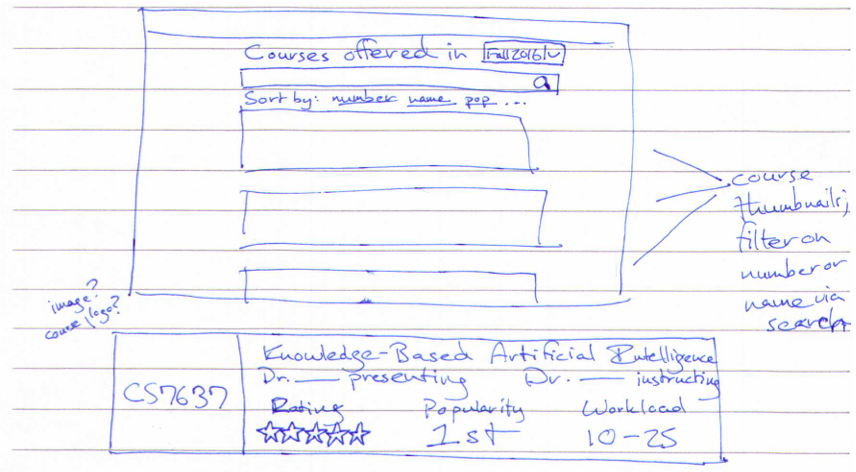 Courses offered in Fall 2016
Sort by: number name pop ...
course
thumbnails;
filter on
number or
name via
search
image?
course logo?
CS7637
Knowledge-Based Artificial Intelligence
Dr. — presenting Dr. — instructing
Rating Popularity Workload
1st 10-25